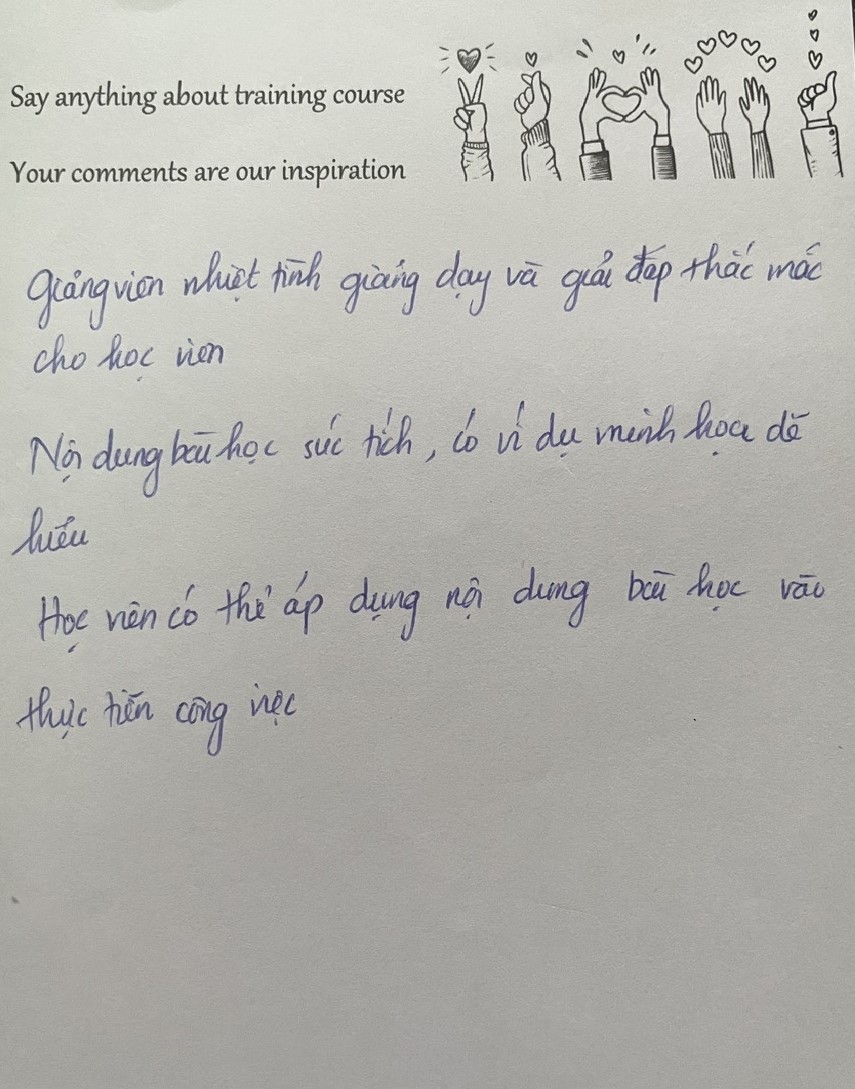 Say anything about training course
Your comments are our inspiration
Giảng viên nhiệt tình giảng dạy và giải đáp thắc mắc
cho học viên
Nội dung bài học súc tích, có ví dụ minh họa dễ
hiểu
Học viên có thể áp dụng nội dung bài học vào
thực tiễn công việc